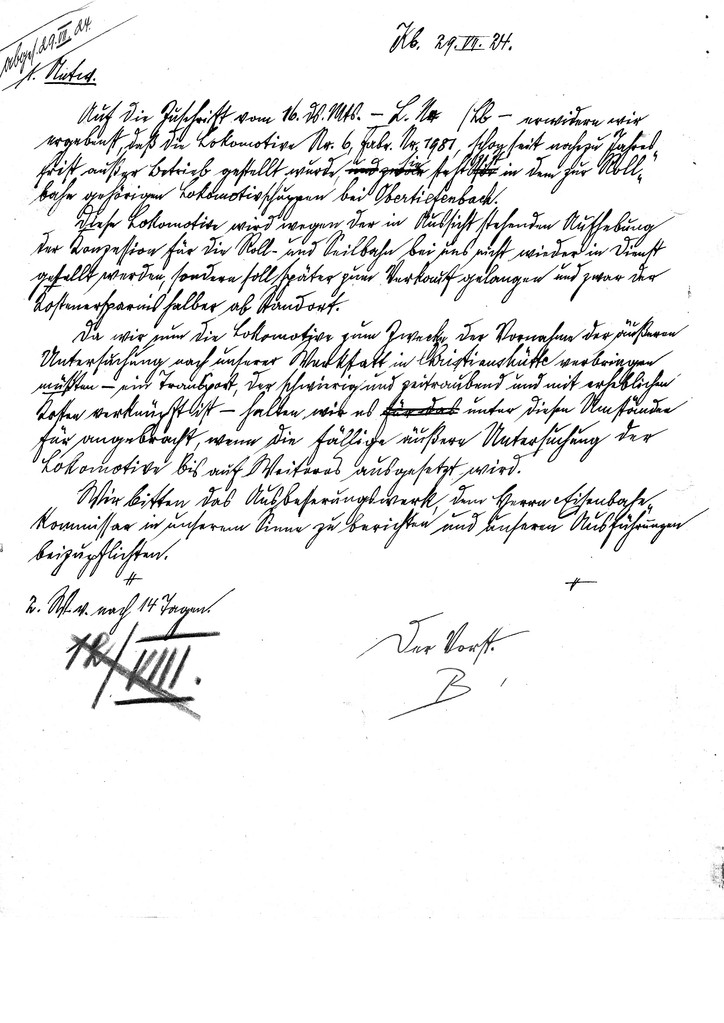 abges. 29.VII.24.
Kb. 29.VII.24.
1. Antw.
Auf die Zuschrift vom 16. ds. Mts. – L. Nr /Lb – erwidern wir
ergebenst, daß die Lokomotive Nr. 6, Fabr. Nr. 1981, schon seit nahezu Jahres-
frist außer Betrieb gestellt wurde, und zwar sie steht in dem zur Roll-
bahn gehörigen Lokomotivschuppen bei Obertiefenbach.
Diese Lokomotive wird wegen der in Aussicht stehenden Aufhebung
der Konzession für die Roll- und Seilbahn bei uns nicht wieder in Dienst
gestellt werden, sondern soll später zum Verkauf gelangen und zwar der
Kostenersparnis halber ab Standort.
Da wir nun die Lokomotive zum Zwecke der Vornahme der äußeren
Untersuchung nach unserer Werkstatt in Christianshütte verbringen
müßten – ein Transport, der schwierig und zeitraubend und mit erheblichen
Kosten verknüpft ist – halten wir es für das unter diesen Umständen
für angebracht, wenn die fällige äußere Untersuchung der
Lokomotive bis auf Weiteres ausgesetzt wird.
Wir bitten das Ausbesserungswerk, dem Herrn Eisenbahn-
kommissar in unserem Sinne zu berichten und unseren Ausführungen
beizupflichten.
2. W. v. nach 14 Tagen.
12/VIII.
Der Vorst.
B